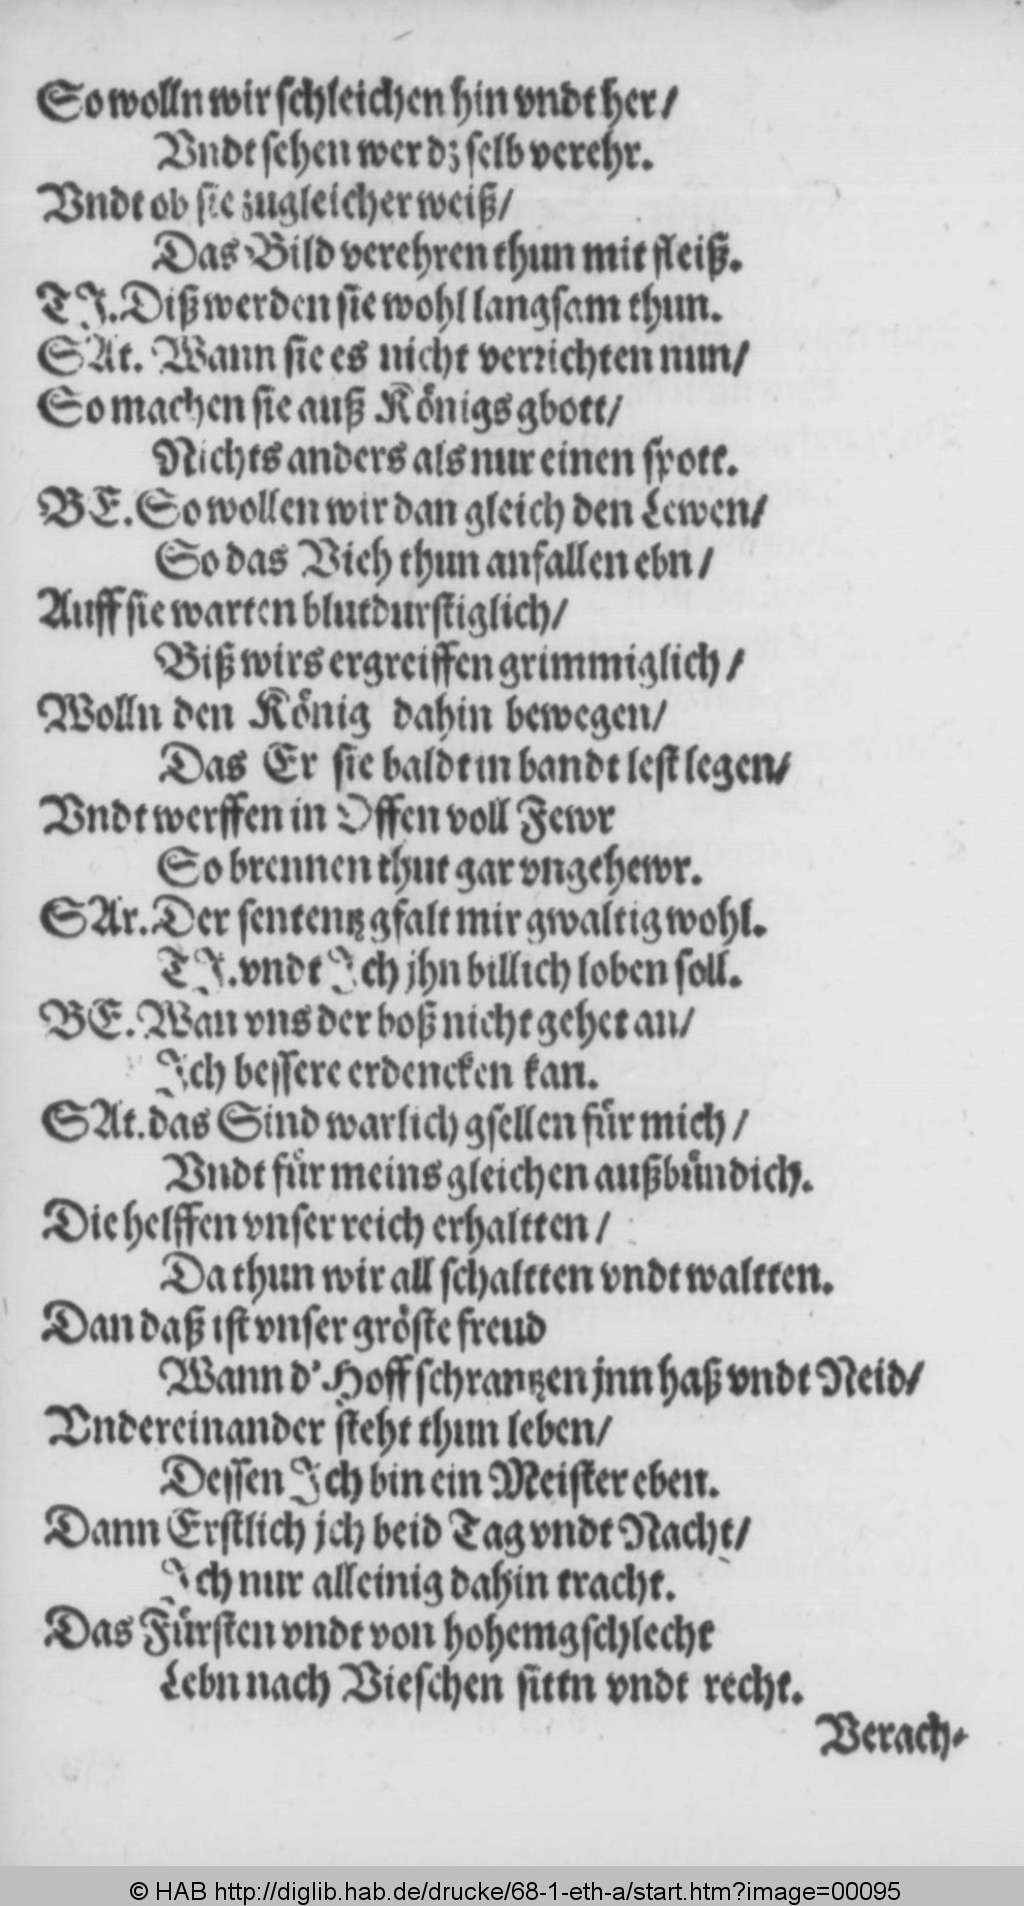 So wolln wir schleichen hin vndt her /
Vndt sehen wer dz selb verehr.
Vndt ob sie zugleicher weiß /
Das Bild verehren thun mit fleiß.
TI. Diß werden sie wohl langsam thun.
SAt. Wann sie es nicht verrichten nun /
So machen sie auß Königs gbott /
Nichts anders als nur einen spott.
BE. So wollen wir dan gleich den Lewen /
So das Vieh thun anfallen ebn /
Auff sie warten blutdurstiglich /
Biß wirs ergreiffen grimmiglich /
Wolln den König dahin bewegen /
Das Er sie baldt in bandt lest legen /
Vndt werffen in Offen voll Fewr
So brennen thut gar vngehewr.
SAr. Der sententz gfalt mir gwaltig wohl.
TI. vndt Ich jhn billich loben soll.
BE. Wan vns der boß nicht gehet an /
Ich bessere erdencken kan.
SAt. das Sind warlich gsellen für mich /
Vndt für meins gleichen außbündich.
Die helffen vnser reich erhaltten /
Da thun wir all schaltten vndt waltten.
Dan daß ist vnser gröste freud
Wann d' Hoffschrantzen jnn haß vndt Neid /
Vndereinander steht thun leben /
Dessen Ich bin ein Meister eben.
Dann Erstlich jch beid Tag vndt Nacht /
Ich nur alleinig dahin tracht.
Das Fürsten vndt von hohem gschlecht
Lebn nach Vieschen sittn vndt recht.
Verach-
© HAB http://diglib.hab.de/drucke/68-1-eth-a/start.htm?image=00095